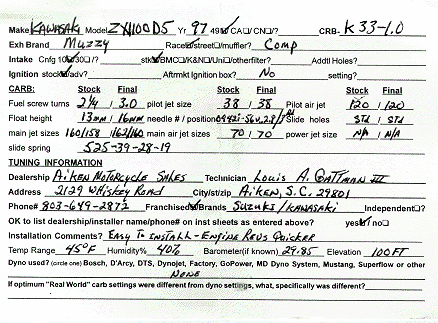 Make KAWASAKI Model ZX1100D5 Yr 97 49☑ CA/☐ CN/☐? CRB- K33-1.0
Exh Brand Muzzy Race☑ street☐/muffler? Comp
Intake Cnfg 10☑ 30☐ /? stk☑ BMC☐ K&N☐/Uni☐/otherfilter? Addtl Holes?
Ignition stock☑ adv/? Aftrmkt Ignition box? No setting?
CARB: Stock Final Stock Final Stock Final
Fuel screw turns 2 1/4 / 3.0 pilot jet size 38 / 38 Pilot air jet 120 / 120
Float height 13mm / 16mm needle # / position Slide holes Std / Std
main jet sizes 160/158 162/160 main air jet sizes 70 / 70 power jet size N/A / N/A
slide spring 525-39-28-19
TUNING INFORMATION
Dealership AIKEN MOTORCYCLE SALES Technician Louis A. III
Address 2129 WHISKEY ROAD City/st/zip AIKEN, S.C. 29801
Phone# 803-649-2872 Franchised☑ Brands SUZUKI/KAWASAKI Independent☐?
OK to list dealership/installer name/phone# on inst sheets as entered above? yes☑ no☐
Installation Comments? EASY TO INSTALL - ENGINE REVS QUICKER
Temp Range 45°F Humidity% 40% Barometer(if known) 29.85 Elevation 100FT
Dyno used? (circle one) Bosch, D'Arcy, DTS, Dynojet, Factory, GoPower, MD Dyno System, Mustang, Superflow or other
NONE
If optimum "Real World" carb settings were different from dyno settings, what, specifically was different?